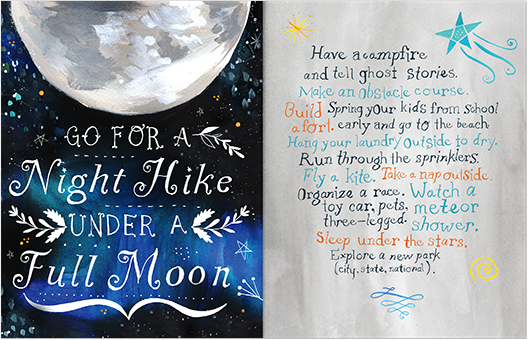 GO FOR A
Night Hike
UNDER A
Full Moon
Have a campfire
and tell ghost stories.
Make an obstacle course.
Build a fort. Spring your kids from school
early and go to the beach.
Hang your laundry outside to dry.
Run through the sprinklers.
Fly a kite. Take a nap outside.
Organize a race. Watch a meteor shower.
toy car, pets,
three-legged.
Sleep under the stars.
Explore a new park
(city, state, national).